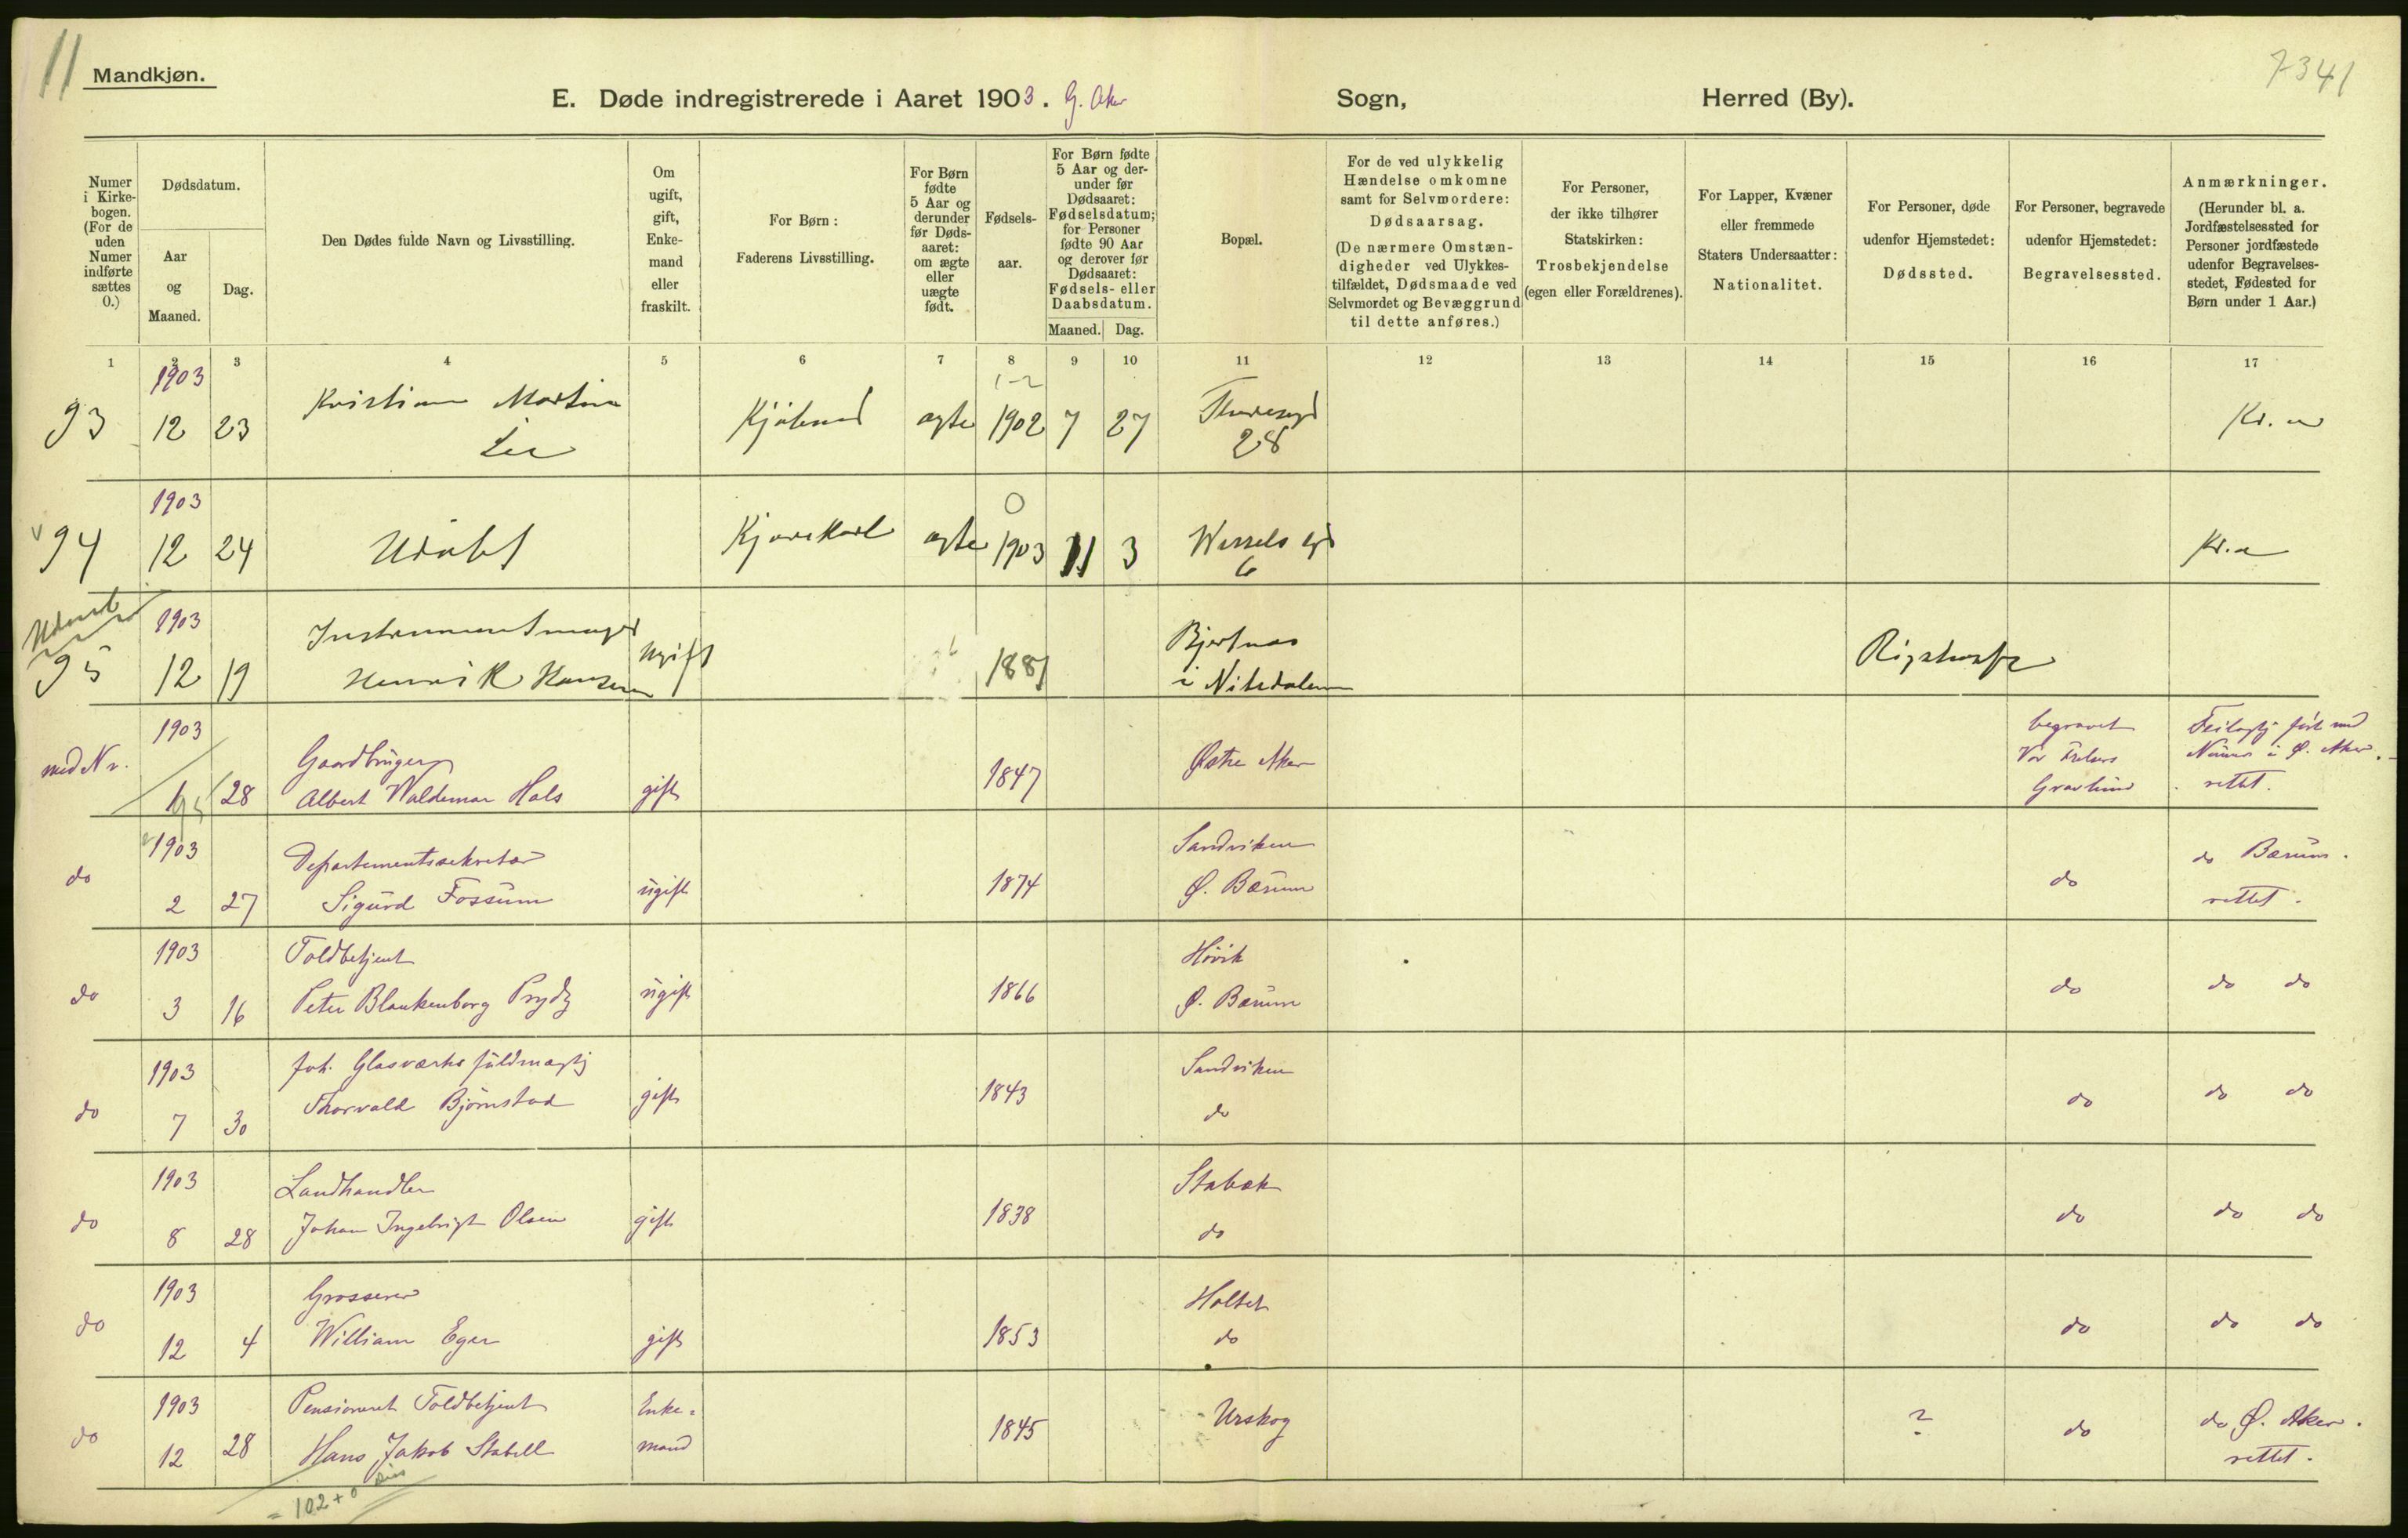 11
Mandkjøn.
7341
E. Døde indregistrerede i Aaret 1903. G. Aker Sogn, Herred (By).
Numer i Kirkebogen. (For de uden Numer indførte sættes 0.)
Dødsdatum.
Aar og Maaned.
Dag.
Den Dødes fulde Navn og Livsstilling.
Om ugift, gift, Enkemand eller fraskilt.
For Børn: Faderens Livsstilling.
For Børn fødte 5 Aar og derunder før Dødsaaret: om ægte eller uægte født.
Fødselsaar.
For Børn fødte 5 Aar og derunder før Dødsaaret: Fødselsdatum; for Personer fødte 90 Aar og derover før Dødsaaret: Fødsels- eller Daabsdatum.
Maaned. Dag.
Bopæl.
For de ved ulykkelig Hændelse omkomne samt for Selvmordere: Dødsaarsag. (De nærmere Omstændigheder ved Ulykkestilfældet, Dødsmaade ved Selvmordet og Bevæggrund til dette anføres.)
For Personer, der ikke tilhører Statskirken: Trosbekjendelse (egen eller Forældrenes).
For Lapper, Kvæner eller fremmede Staters Undersaatter: Nationalitet.
For Personer, døde udenfor Hjemstedet: Dødssted.
For Personer, begravede udenfor Hjemstedet: Begravelsessted.
Anmærkninger. (Herunder bl. a. Jordfæstelsessted for Personer jordfæstede udenfor Begravelsesstedet, Fødested for Børn under 1 Aar.)
1 2 3 4 5 6 7 8 9 10 11 12 13 14 15 16 17
1903 1-2
93 12 23 Kristian Martin Lie ægte 1902 7 27 28 Kr.a
1903 0
94 12 24 Udøbt ægte 1903 11 3 Wessels gd 6 Kr.a
1903 Instrumentmager Bjertnæs
95 12 19 Henrik Hansen ugift 1881 i Nitedalen Rigshosp
1903 Gaardbruger begravet Feilagtig ført med
med Nr. 1 28 Albert Waldemar Hals gift 1847 Østre Aker Vor Frelsers Gravlund Numer i Ø. Aker. rettet.
1903 Departementssekretær Sandviken do Bærum.
do 2 27 Sigurd Fossum ugift 1874 Ø. Bærum do rettet.
1903 Toldbetjent Høvik
do 3 16 Peter Blankenborg Prydz ugift 1866 Ø. Bærum do do do
1903 fh. Glasværksfuldmægtig Sandviken
do 7 30 Thorvald Bjørnstad gift 1843 do do do do
1903 Landhandler Stabæk
do 8 28 Johan Ingebrigt Olsen gift 1838 do do do do
1903 Grosserer Holtet
do 12 4 William Eger gift 1853 do do do do
1903 Pensioneret Toldbetjent Enke=
do 12 28 Hans Jakob Stabell mand 1845 Urskog ? do do Ø. Aker. rettet.
= 102 + 0